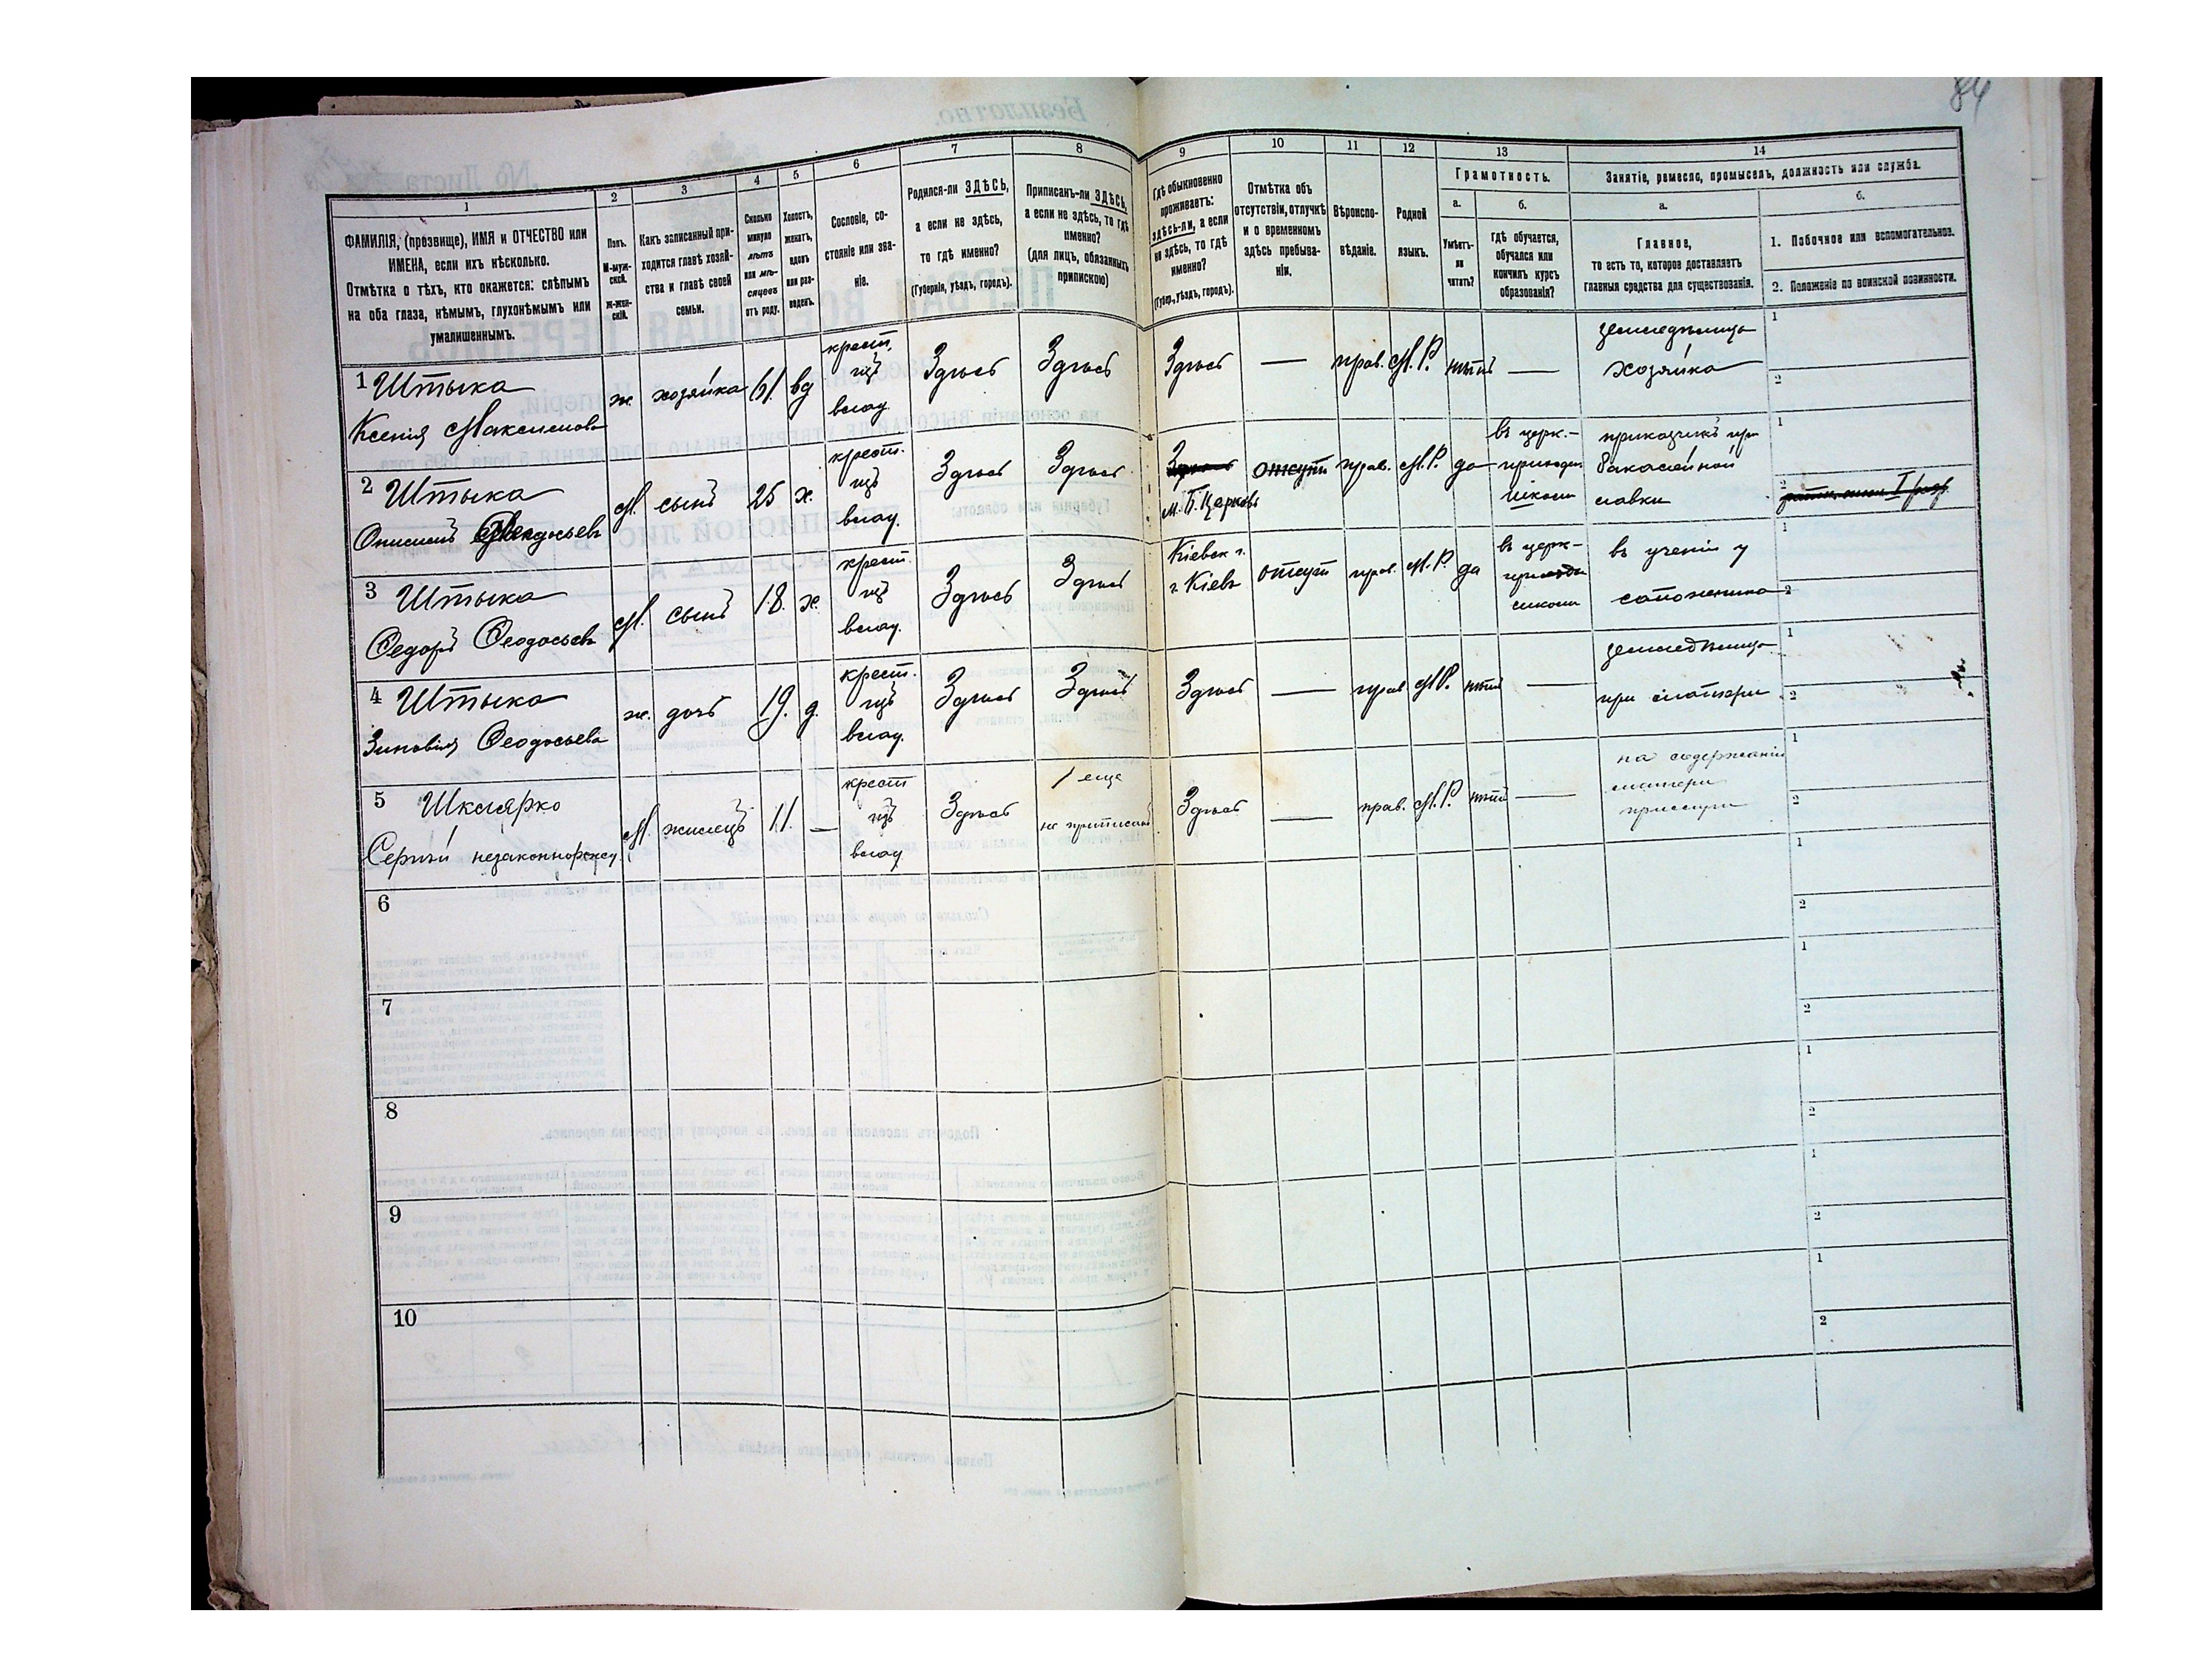 84
1
2
3
4
5
6
7
8
9
10
11
12
13
14
ФАМИЛІЯ, (прозвище), ИМЯ и ОТЧЕСТВО или
ИМЕНА, если ихъ нѣсколько.
Отмѣтка о тѣхъ, кто окажется: слѣпымъ
на оба глаза, нѣмымъ, глухонѣмымъ или
умалишеннымъ.
Полъ.
М-муж-
ской.
Ж-жен-
скій.
Какъ записанный при-
ходится главѣ хозяй-
ства и главѣ своей
семьи.
Сколько
минуло
лѣтъ
или мѣ-
сяцевъ
отъ роду.
Холостъ,
женатъ,
вдовъ
или раз-
веденъ.
Сословіе, со-
стояніе или зва-
ніе.
Родился-ли ЗДѢСЬ,
а если не здѣсь,
то гдѣ именно?
(Губернія, уѣздъ, городъ).
Приписанъ-ли ЗДѢСЬ,
а если не здѣсь, то гдѣ
именно?
(для лицъ, обязанныхъ
припискою)
Гдѣ обыкновенно
проживаетъ:
здѣсь-ли, а если
не здѣсь, то гдѣ
именно?
(Губер., уѣздъ, городъ).
Отмѣтка объ
отсутствіи, отлучкѣ
и о временномъ
здѣсь пребыва-
ніи.
Вѣроиспо-
вѣданіе.
Родной
языкъ.
Грамотность.
а.
Умѣетъ-
ли
читать?
б.
гдѣ обучается,
обучался или
кончилъ курсъ
образованія?
Занятіе, ремесло, промыселъ, должность или служба.
а.
Главное,
то есть то, которое доставляетъ
главныя средства для существованія.
б.
1. Побочное или вспомогательное.
2. Положеніе по воинской повинности.
1 Штыка
Ксенія Максимова
ж. хозяйка 61. вд
крест.
изъ
влад.
Здѣсь Здѣсь Здѣсь — прав. М.Р. нѣтъ —
земледѣлица
хозяйка
1
2
2 Штыка
Онисимъ Феодосьевъ
М. сынъ 25 х.
крест.
изъ
влад.
Здѣсь Здѣсь
м. Б. Церковь
отсутп прав. М.Р. да
въ церк.-
приход.
школи
приказчикъ при
бакалейной
лавки
1
2
3 Штыка
Федоръ Феодосьевъ
М. сынъ 18. х.
крест.
изъ
влад.
Здѣсь Здѣсь
Кіевск г.
г. Кіевъ
отсут прав. М.Р. да
въ церк-
приходс
школи
въ ученіи у
сапожника
1
2
4 Штыка
Зиновія Феодосьева
ж. дочь 19. д.
крест.
изъ
влад.
Здѣсь Здѣсь Здѣсь — прав М.Р. нѣтъ —
земледѣлица
при матери
1
2
5 Шклярко
Сергѣй незаконнорожд.
М. жилецъ 11. —
крест
изъ
влад
Здѣсь
еще
не приписанъ
Здѣсь — прав. М.Р. нѣтъ —
на содержаніи
матери
прислуги
1
2
6
1
2
7
1
2
8
1
2
9
1
2
10
1
2